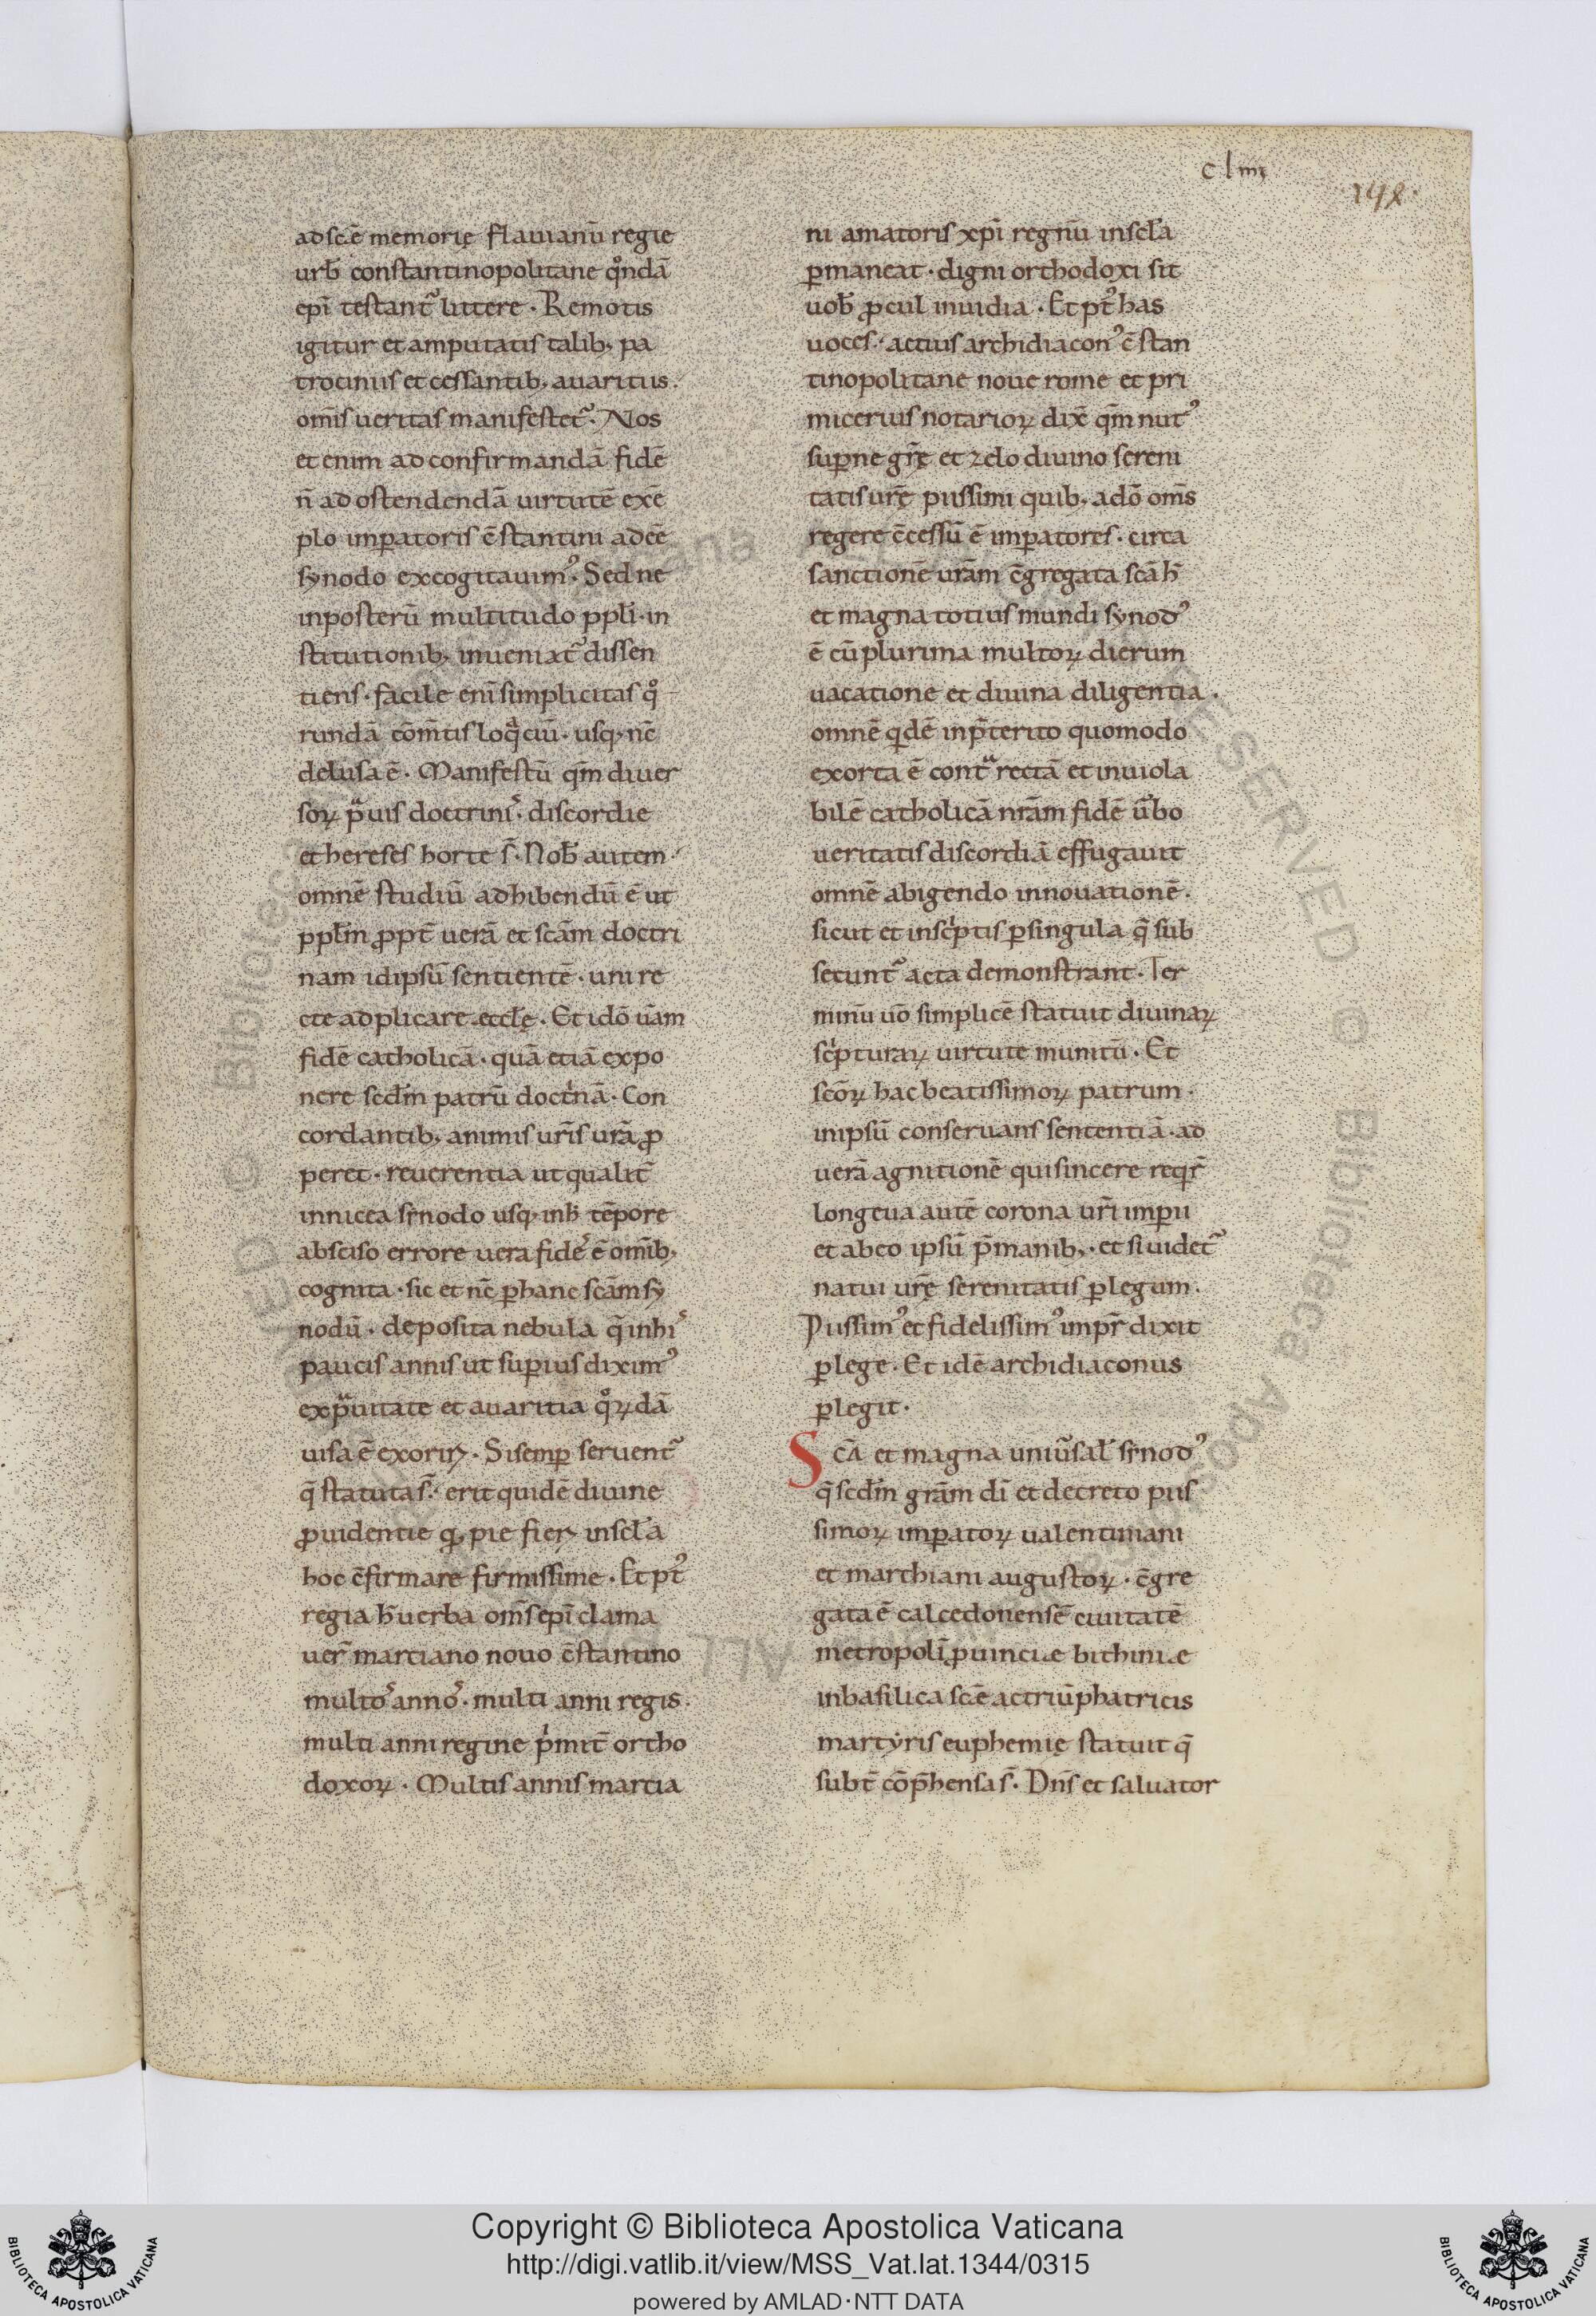 clmı
148.
ad scē memorię flauianū regie
urƀ constantinopolitane qͦndā
epī testant᷑ littere · Remotis
igitur et amputatis talib; pa
trociniis et cessantib; auaritiis.
om̄is ueritas manifestet᷑. Nos
et enim ad confirmandā fidē
n̄ ad ostendendā uirtutē exē
plo imꝑatoris c̄stantini adeē
synodo excogitauimꝰ. Sed ne
inposterū multitudo ppl̄i · in
stitutionib; inueniat᷑ dissen
tiens · facile enī simplicitas qͦ
rundā tōmtis loqͣciū · usq; nc̄
delusa ē. Manifestū qm̄ diuer
soꝝ pͣuis doctrinis · discordie
et hereses horte s̄. Noƀ autem
omnē studiū adhibendū ē ut
ppl̄m ꝓpt̄ uerā et scām doctri
nam idipsū sentientē · uni re
cte adplicare eccl̄ę. Et idō uām
fidē catholicā · quā etiā expo
nere scđm patrū doctͥnā · Con
cordantib; animis ur̄is urā ꝓ
peret · reuerentia ut qualit̄
innicea sẏnodo usq; in h̄ tēpore
absciso errore uera fidēs ē om̄ib;
cognita · sic et nc̄ ꝑ hanc scām sy
nodū · deposita nebula q̄ inhis
paucis annis ut superius diximꝰ
expͣuitate et auaritia qͦꝝdā
uisa ē exoriꝶ. Si semꝑ seruent᷑
q̄ statuta s̄ · erit quidē diuine
ꝓuidentie ꝙ pie fieꝶ inscl̄a
hoc c̄firmare firmissime · Et pt̄ꝰ
regia h̄ uerba oms̄ epī clama
uer̄ martiano nouo c̄stantino
multoꝰ annoꝰ · multi anni regis.
multi anni regine pͥmit̄ ortho
doxoꝝ · Multis annis martia
ni amatoris xp̄i regnū inscl̄a
ꝑmaneat · digni orthodoxi sit
uoƀ ꝓcul inuidia · Et pt̄ꝰ has
uoces · aetius archidiaconꝰ c̄stan
tinopolitane noue rome et pri
micerius notarioꝝ dix̄ qm̄ nutꝰ
suꝑne gr̄ę et zelo diuino sereni
tatis ur̄ę piissimi quib; a dō oms̄
regere c̄cessū ē imꝑatores · circa
sanctionē urām c̄gregata scā h̄
et magna totius mundi synodꝰ
ē cū plurima multoꝝ dierum
uacatione et diuina diligentia.
omnē qͥdē inp̄terito quomodo
exorta ē contͣ rectā et inuiola
bilē catholicā nrām fidē ūbo
ueritatis discordiā effugauit
omnē abigendo innouationē.
sicut et inscͥptis ꝑ singula q̄ sub
secunt᷑ acta demonstrant · Ter
minū uō simplicē statuit diuinaꝝ
scͥpturaꝝ uirtute munitū · Et
scōꝝ hac beatissimoꝝ patrum.
inipsū conseruans sententiā · ad
uerā agnitionē qui sincere reqͥr̄
longeua autē corona ur̄i imꝑii
et ab eo ipsū p̄ manib; · et si uidet᷑
natui ur̄ę serenitatis ꝑlegum.
Piissimꝰ et fidelissimꝰ impr̄ dixit
ꝑlege · Et idē archidiaconus
ꝑlegit.
Scā et magna uniūsal̄ sẏnodꝰ
q̄ scđm grām dī et decreto piis
simoꝝ imꝑatoꝝ ualentiniani
et marthiani augustoꝝ · c̄gre
gata ē calcedonensē ciuitatē
metropolī ꝓuinciæ bithiniæ
inbasilica scē ac triūphatricis
martẏris euphemię statuit q̄
subt̄ cōp̄hensa s̄. Dn̄s et saluator
Copyright © Biblioteca Apostolica Vaticana
http://digi.vatlib.it/view/MSS_Vat.lat.1344/0315
powered by AMLAD·NTT DATA
BIBLIOTECA APOSTOLICA VATICANA
BIBLIOTECA APOSTOLICA VATICANA